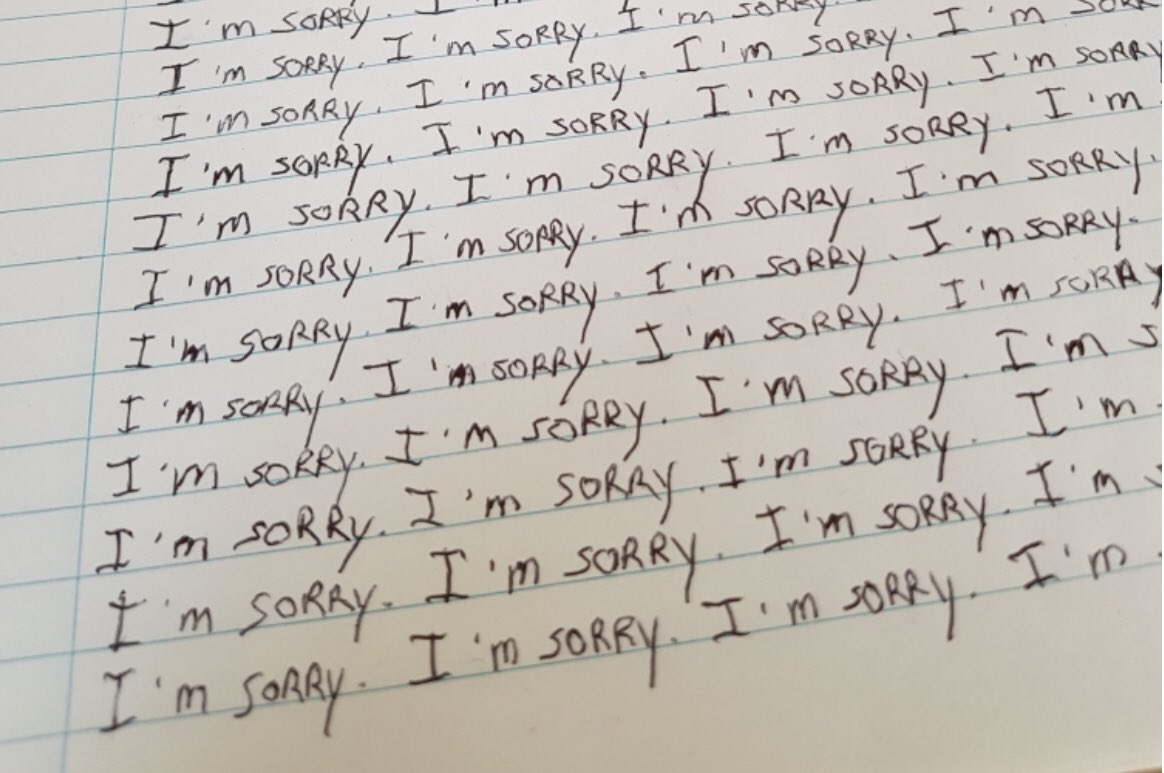 I'm SORRY. I
I'm SORRY. I'm SORRY. I'm SORRY.
I'm SORRY. I'm SORRY. I'm SORRY. I'm
I'm SORRY. I'm SORRY. I'm SORRY. I'm SORRY
I'm SORRY. I'm SORRY. I'm SORRY. I'm
I'm SORRY. I'm SORRY. I'm SORRY. I'm SORRY.
I'm SORRY. I'm SORRY. I'm SORRY. I'm SORRY.
I'm SORRY. I'm SORRY. I'm SORRY. I'm SORRY
I'm SORRY. I'm SORRY. I'm SORRY. I'm S
I'm SORRY. I'm SORRY. I'm SORRY. I'm
I'm SORRY. I'm SORRY. I'm SORRY. I'm
I'm SORRY. I'm SORRY. I'm SORRY. I'm